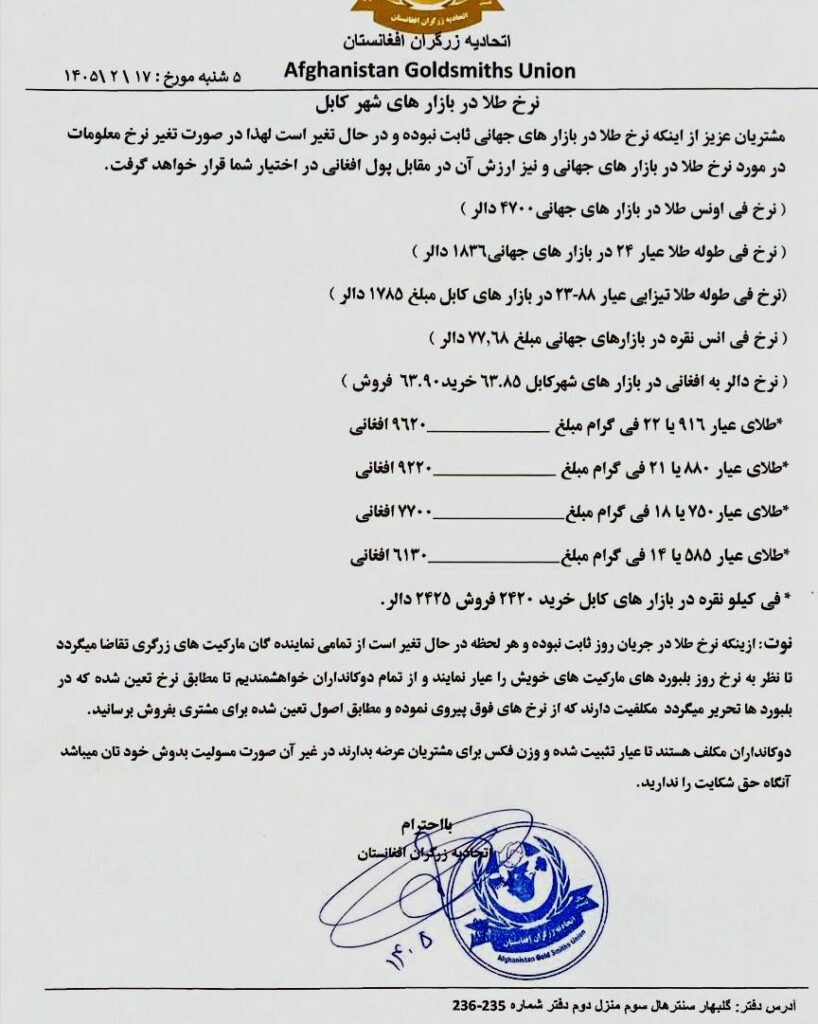 اتحادیه زرگران افغانستان
اتحادیه زرگران افغانستان
Afghanistan Goldsmiths Union
۵ شنبه مورخ: ۱۷ \ ۲ \ ۱۴۰۵
نرخ طلا در بازار های شهر کابل
مشتریان عزیز از اینکه نرخ طلا در بازار های جهانی ثابت نبوده و در حال تغیر است لهذا در صورت تغیر نرخ معلومات
در مورد نرخ طلا در بازار های جهانی و نیز ارزش آن در مقابل پول افغانی در اختیار شما قرار خواهد گرفت.
( نرخ فی اونس طلا در بازار های جهانی۴۷۰۰ دالر )
( نرخ فی طوله طلا عیار ۲۴ در بازار های جهانی۱۸۳۶ دالر )
(نرخ فی طوله طلا تیزابی عیار ۸۸-۲۳ در بازار های کابل مبلغ ۱۷۸۵ دالر )
( نرخ فی انس نقره در بازارهای جهانی مبلغ ۷۷,۶۸ دالر )
( نرخ دالر به افغانی در بازار های شهرکابل ۶۳.۸۵ خرید۶۳.۹۰ فروش )
*طلای عیار ۹۱۶ یا ۲۲ فی گرام مبلغ ______________۹۶۲۰ افغانی
*طلای عیار ۸۸۰ یا ۲۱ فی گرام مبلغ ______________۹۲۲۰ افغانی
*طلای عیار۷۵۰ یا ۱۸ فی گرام مبلغ______________۷۷۰۰ افغانی
*طلای عیار ۵۸۵ یا ۱۴ فی گرام مبلغ______________۶۱۳۰ افغانی
* فی کیلو نقره در بازار های کابل خرید ۲۴۲۰ فروش ۲۴۲۵ دالر.
نوت: ازینکه نرخ طلا در جریان روز ثابت نبوده و هر لحظه در حال تغیر است از تمامی نماینده گان مارکیت های زرگری تقاضا میگردد
تا نظر به نرخ روز بلبورد های مارکیت های خویش را عیار نمایند و از تمام دوکانداران خواهشمندیم تا مطابق نرخ تعین شده که در
بلبورد ها تحریر میگردد مکلفیت دارند که از نرخ های فوق پیروی نموده و مطابق اصول تعین شده برای مشتری بفروش برسانید.
دوکانداران مکلف هستند تا عیار تثبیت شده و وزن فکس برای مشتریان عرضه بدارند در غیر آن صورت مسولیت بدوش خود تان میباشد
آنگاه حق شکایت را ندارید.
بااحترام
اتحادیه زرگران افغانستان
اتحادیه زرگران افغانستان
Afghanistan Gold Smiths Union
۱۴۰۵
آدرس دفتر: گلبهار سنترهال سوم منزل دوم دفتر شماره 235-236